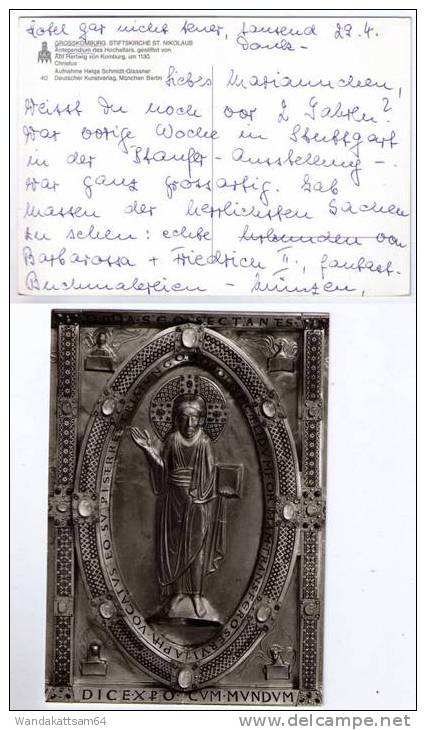 Hotel gar nicht teuer, tausend 29.4.
Dank-
GROSSKOMBURG, STIFTSKIRCHE ST. NIKOLAUS
Antependium des Hochaltars, gestiftet von
Abt Hertwig von Komburg, um 1130.
Christus
Aufnahme Helga Schmidt-Glassner
40 Deutscher Kunstverlag, München Berlin
Liebes Mariannchen,
Weisst Du noch vor 2 Jahren?
War vorige Woche in Stuttgart
in der Staufer-Ausstellung -
war ganz grossartig. Gab
Massen der herrlichsten Sachen
zu sehen: echte Urkunden von
Barbarossa + Friedrich II., fantast.
Buchmalereien - Münzen,
DICEXPO CVM MVNDVM
Wandakattsam64
www.delcampe.net